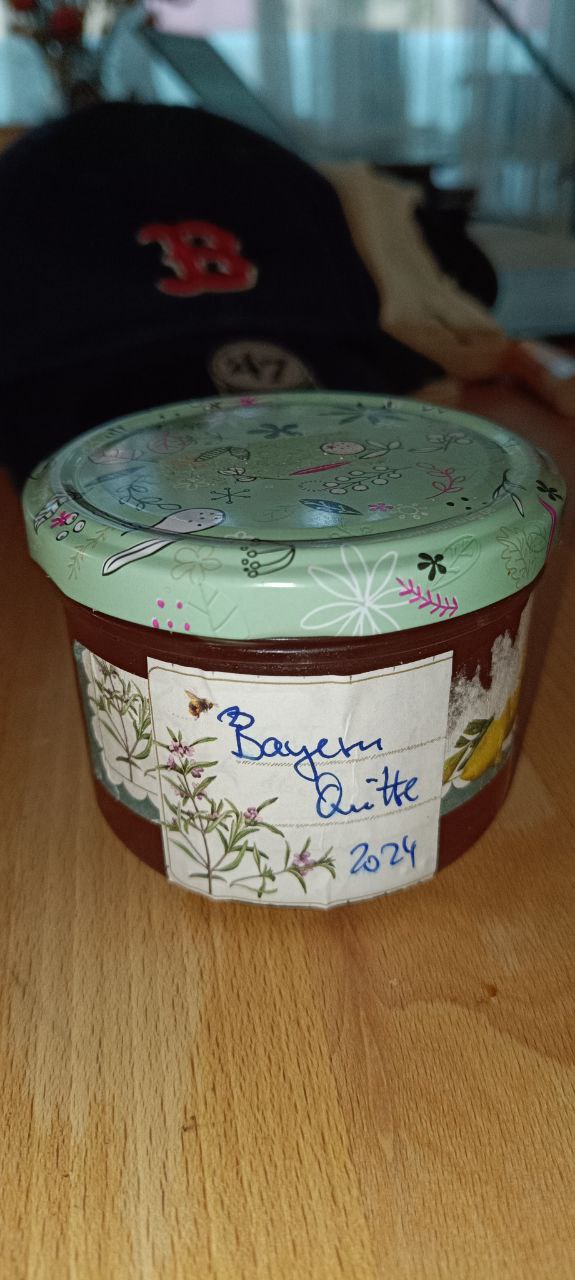 B
'47
Bayern
Quitte
2024